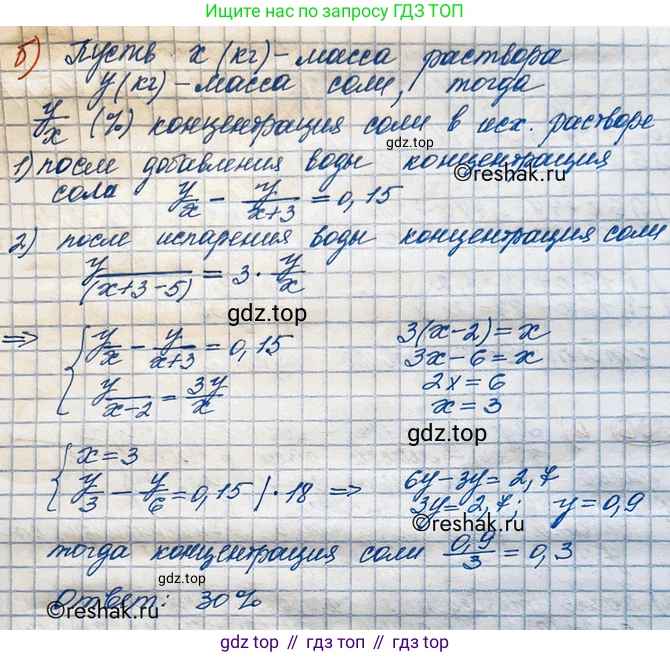 Нашли решение по запросу ГДЗ ТОП
б) Пусть x (кг) - масса раствора
y (кг) - масса соли, тогда
y/x (%) концентрация соли в исх. растворе
1) после добавления воды концентрация
©reshak.ru
сола y/x - y/(x+3) = 0,15
2) после испарения воды концентрация соли
y/(x+3-5) = 3 · y/x
gdz.top
=> { y/x - y/(x+3) = 0,15 3(x-2) = x
3x - 6 = x
y/(x-2) = 3y/x 2x = 6
x = 3
gdz.top
{ x = 3
y/3 - y/6 = 0,15 | · 18 => 6y - 3y = 2,7
3y = 2,7; y = 0,9
©reshak.ru
тогда концентрация соли 0,9/3 = 0,3
Ответ: 30%
©reshak.ru
gdz.top // гдз.топ // gdz.top